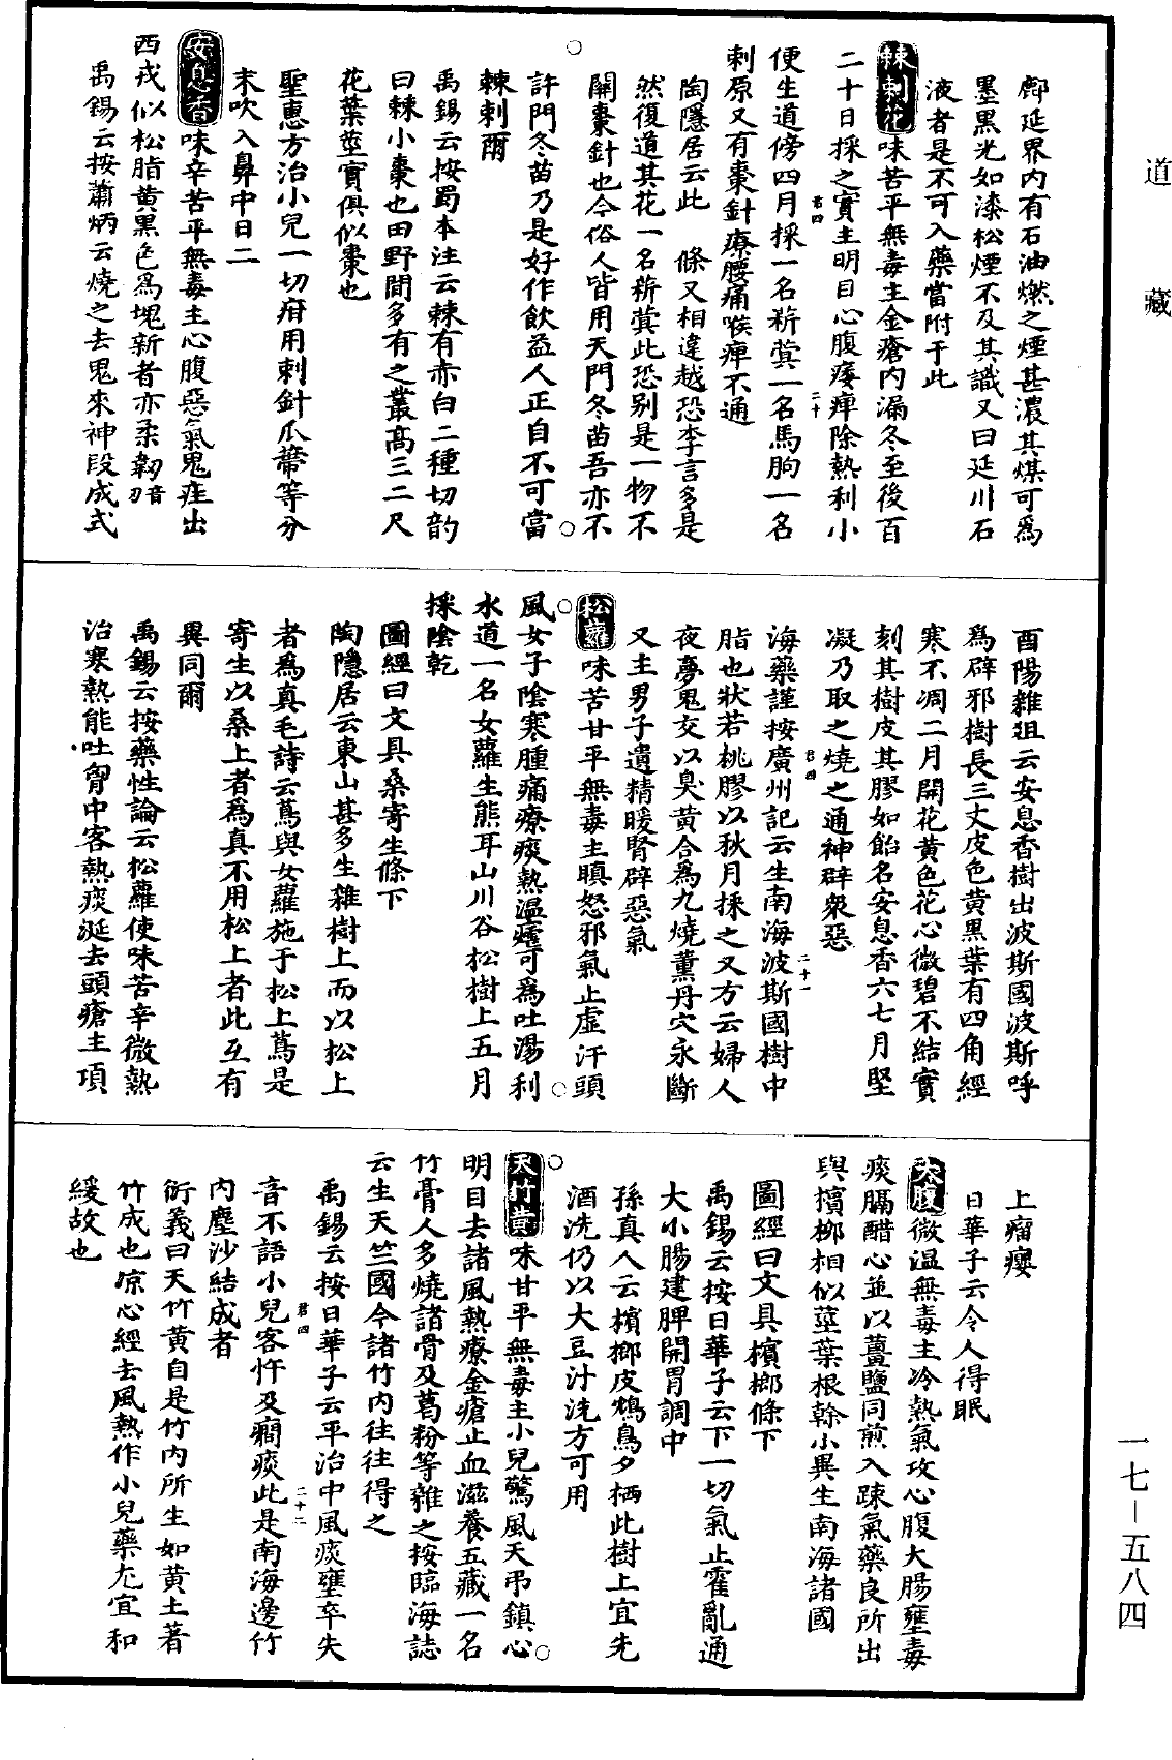 道藏
鄜延界內有石油燃之煙甚濃其煤可爲
墨黑光如漆松煙不及其識又曰延川石
液者是不可入藥當附于此
棘刺花味苦平無毒主金瘡內漏冬至後百
二十日採之實主明目心腹痿痺除熱利小
便生道傍四月採一名菥蓂一名馬朐一名
刺原又有棗針療腰痛喉痺不通
君四
二十
陶隱居云此 條又相違越恐李言多是
然復道其花一名菥蓂此恐别是一物不
關棗針也今俗人皆用天門冬苗吾亦不
許門冬苗乃是好作飲益人正自不可當
棘刺爾
禹錫云按蜀本注云棘有赤白二種切韵
曰棘小棗也田野間多有之叢高三二尺
花葉莖實俱似棗也
聖惠方治小兒一切疳用刺針瓜蒂等分
末吹入鼻中日二
安息香味辛苦平無毒主心腹惡氣鬼疰出
西戎似松脂黄黑色爲塊新者亦柔韌刃音
禹錫云按蕭炳云燒之去鬼來神段成式
酉陽雜俎云安息香樹出波斯國波斯呼
爲辟邪樹長三丈皮色黄黑葉有四角經
寒不凋二月開花黄色花心微碧不結實
刻其樹皮其膠如飴名安息香六七月堅
凝乃取之燒之通神辟衆惡
君四
二十一
海藥謹按廣州記云生南海波斯國樹中
脂也狀若桃膠以秋月採之又方云婦人
夜夢鬼交以臭黄合爲丸燒薰丹穴永斷
又主男子遺精暖腎辟惡氣
松蘿味苦甘平無毒主瞋怒邪氣止虛汗頭
風女子陰寒腫痛療痰熱溫瘧可爲吐湯利
水道一名女蘿生熊耳山川谷松樹上五月
採陰乾
圖經曰文具桑寄生條下
陶隱居云東山甚多生雜樹上而以松上
者爲真毛詩云蔦與女蘿施于松上蔦是
寄生以桑上者爲真不用松上者此互有
異同爾
禹錫云按藥性論云松蘿使味苦辛微熱
治寒熱能吐胷中客熱痰涎去頭瘡主項
上瘤癭
日華子云令人得眠
大腹微溫無毒主冷熱氣攻心腹大腸壅毒
痰膈醋心並以薑鹽同煎入踈氣藥良所出
與檳榔相似莖葉根榦小異生南海諸國
圖經曰文具檳榔條下
禹錫云按日華子云下一切氣止霍亂通
大小腸建脾開胃調中
孫真人云檳榔皮鴆鳥夕栖此樹上宜先
酒洗仍以大豆汁洗方可用
天竹黄味甘平無毒主小兒驚風天吊鎮心
明目去諸風熱療金瘡止血滋養五藏一名
竹膏人多燒諸骨及葛粉等雜之按臨海誌
云生天竺國今諸竹內往往得之
禹錫云按日華子云平治中風痰壅卒失
音不語小兒客忤及癇痰此是南海邊竹
內塵沙結成者
君四
二十二
衍義曰天竹黄自是竹內所生如黄土著
竹成也凉心經去風熱作小兒藥尤宜和
緩故也
一七－五八四